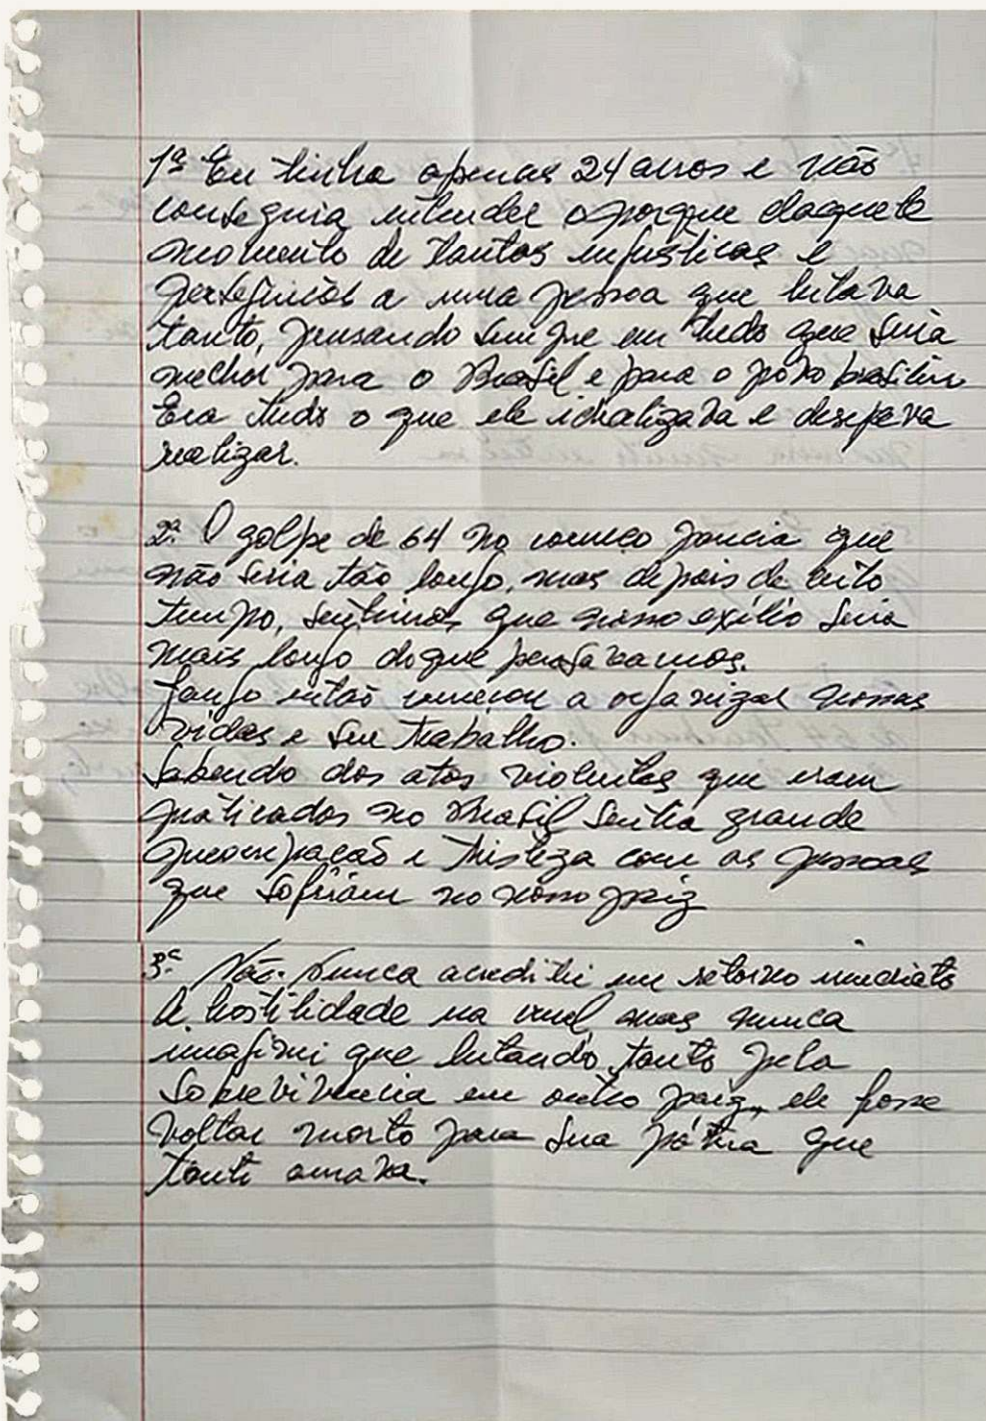 1ª Eu tinha apenas 24 anos e não
conseguia entender o porque daquele
momento de tantas injustiças e
perseguições a uma pessoa que lutava
tanto, pensando sempre em tudo que seria
melhor para o Brasil e para o povo brasileiro
Era tudo o que ele idealizava e desejava
realizar.
2ª O golpe de 64 no começo parecia que
não seria tão longo, mas depois de certo
tempo, sentimos que nosso exílio seria
mais longo do que pensavamos.
Jango então começou a organizar nossas
vidas e seu trabalho.
Sabendo dos atos violentos que eram
praticados no Brasil sentia grande
preocupação e tristeza com as pessoas
que sofriam no nosso paiz
3ª Não. Nunca acreditei em retorno imediato
A hostilidade era cruel, mas nunca
imaginei que lutando tanto pela
sobrevivencia em outro paiz, ele fosse
voltar morto para sua pátria que
tanto amava.